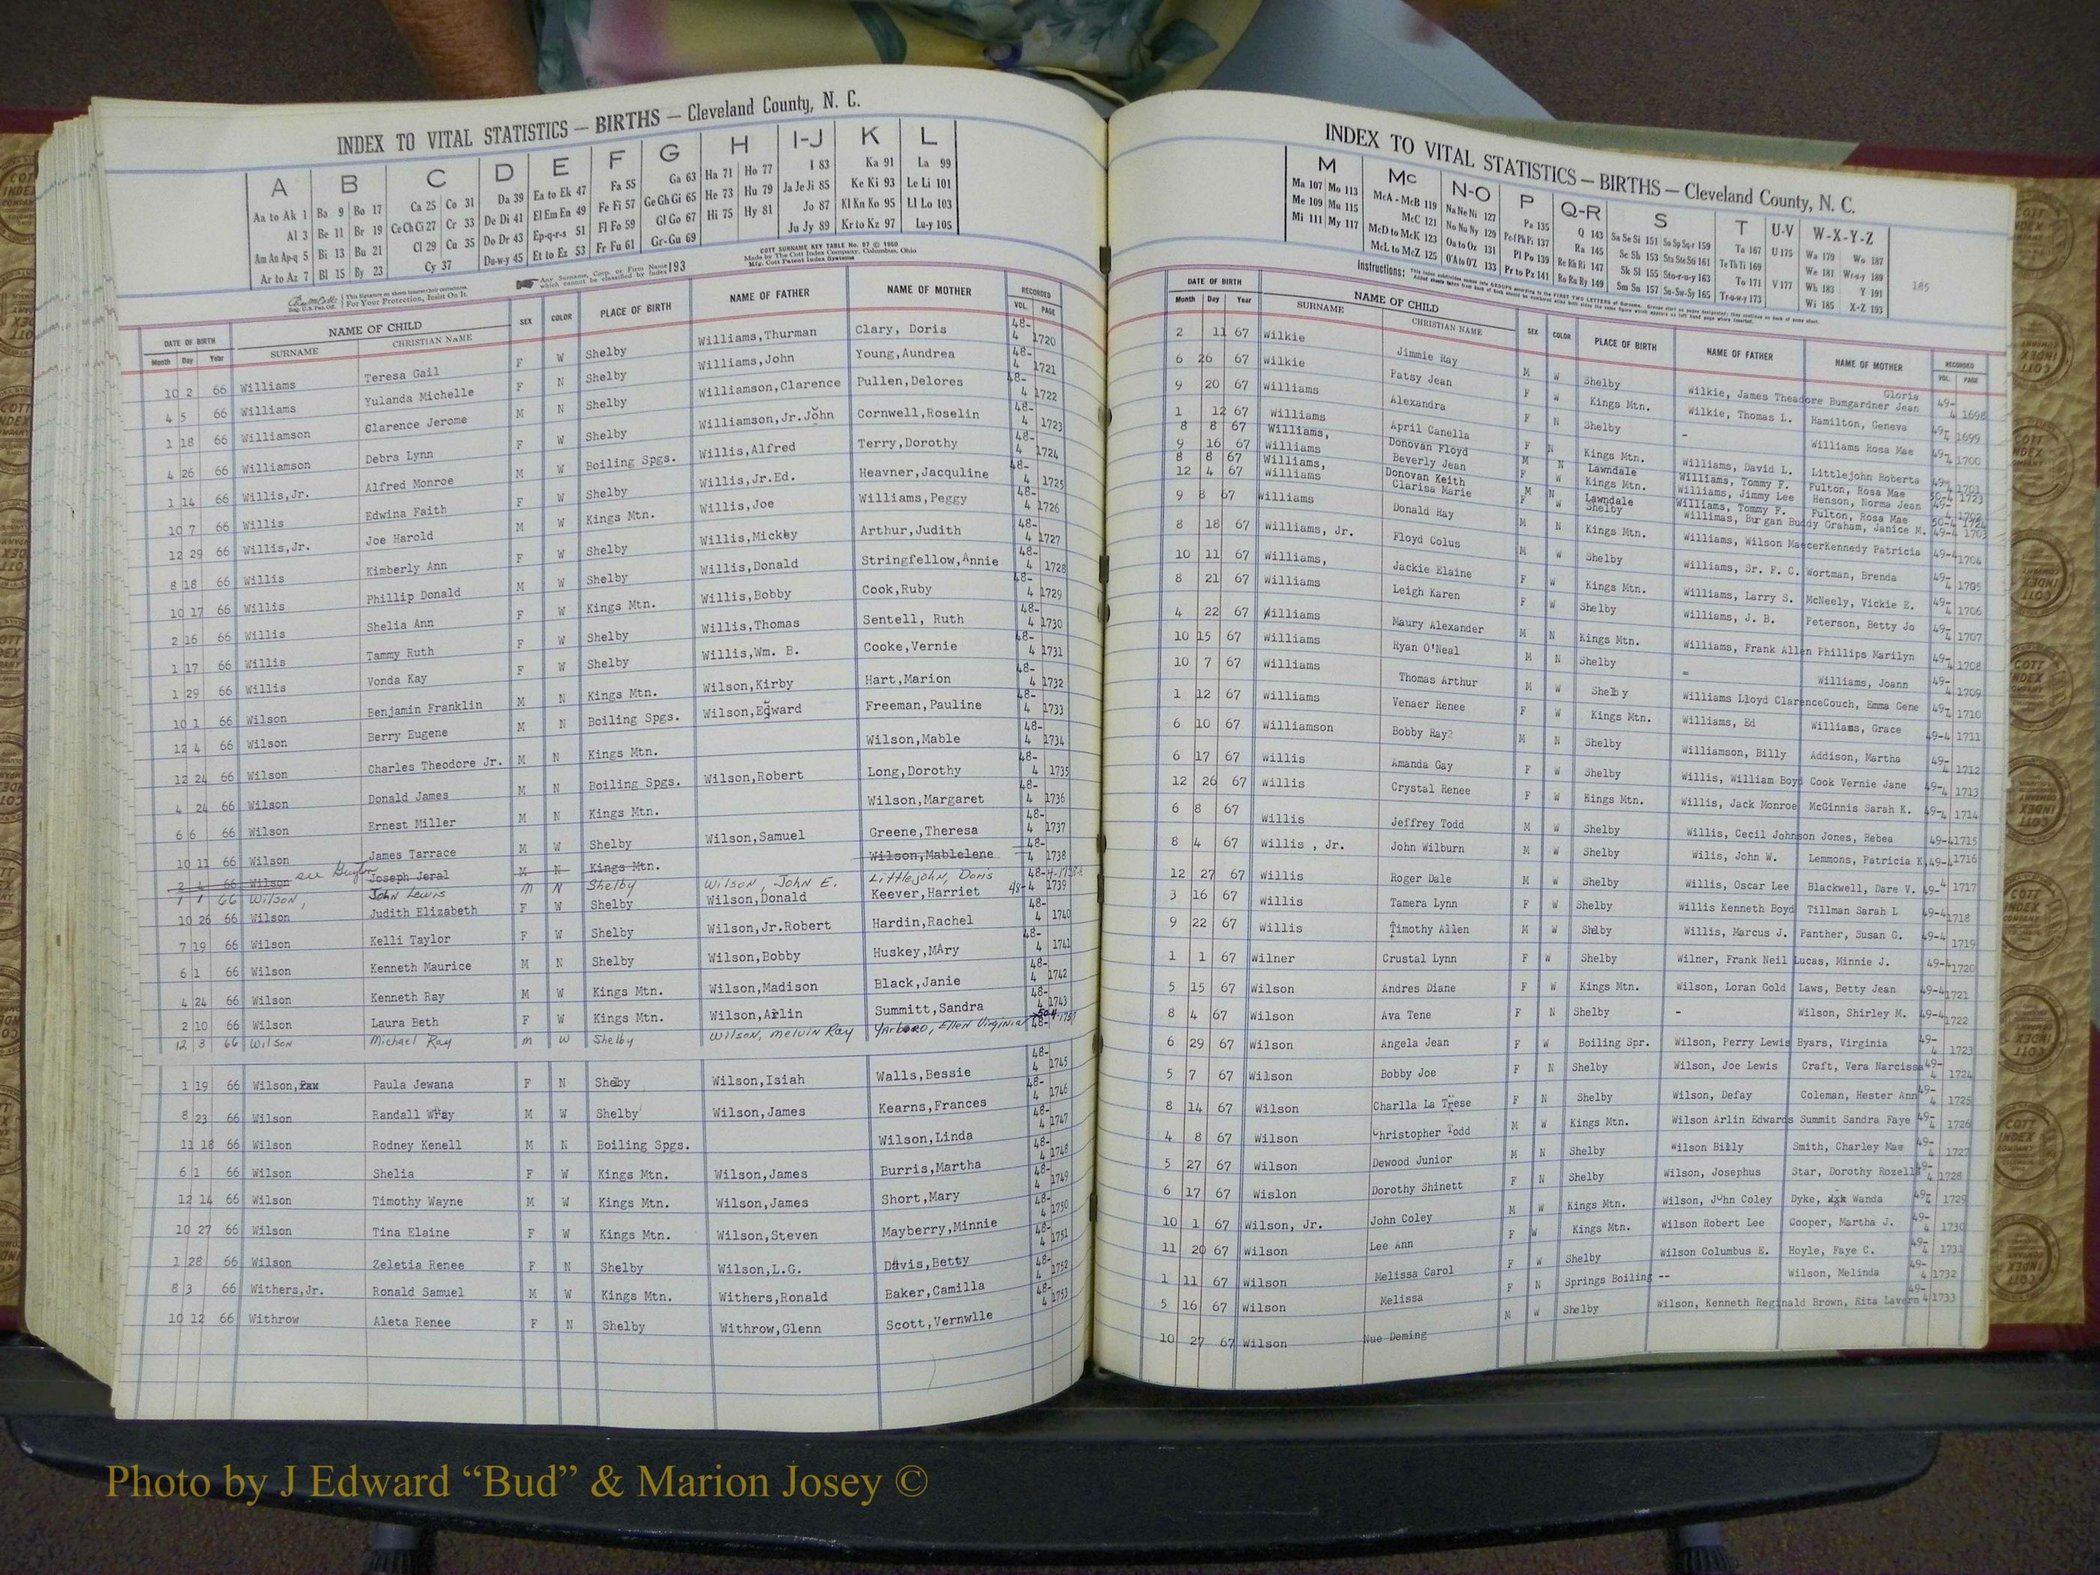 INDEX TO VITAL STATISTICS — BIRTHS — Cleveland County, N. C.
A B C D E F G H I-J K L
Aa to Ak 1 Ba 9 Bo 17 Ca 25 Co 31 Da 39 Ea to Ek 47 Fa 55 Ga 63 Ha 71 Ho 77 I 83 Ka 91 La 99
Al 3 Be 11 Br 19 Ce Ch Ci 27 Cr 33 De Di 41 El Em En 49 Fe Fi 57 Ge Gh Gi 65 He 73 Hu 79 Ja Je Ji 85 Ke Ki 93 Le Li 101
Am An Ap-q 5 Bi 13 Bu 21 Cl 29 Cu 35 Do Dr 43 Ep-q-r-s 51 Fl Fo 59 Gl Go 67 Hi 75 Hy 81 Jo 87 Kl Kn Ko 95 Ll Lo 103
Ar to Az 7 Bl 15 By 23 Cy 37 Du-w-y 45 Et to Ez 53 Fr Fu 61 Gr-Gu 69 Ju Jy 89 Kr to Kz 97 Lu-y 105
COTT SURNAME KEY TABLE No. 97 © 1960
Made by The Cott Index Company, Columbus, Ohio
Mfg. Cott Patent Index Systems
For Your Protection, Insist On It.
Any Surname, Corp. or Firm Name which cannot be classified by Index 193
DATE OF BIRTH NAME OF CHILD SEX COLOR PLACE OF BIRTH NAME OF FATHER NAME OF MOTHER RECORDED
Month Day Year SURNAME CHRISTIAN NAME VOL. PAGE
10 2 66 Williams Teresa Gail F W Shelby Williams,Thurman Clary, Doris 48-4 1720
4 5 66 Williams Yulanda Michelle F N Shelby Williams,John Young,Aundrea 48-4 1721
1 18 66 Williamson Clarence Jerome M N Shelby Williamson,Clarence Pullen,Delores 48-4 1722
4 26 66 Williamson Debra Lynn F W Shelby Williamson,Jr.John Cornwell,Roselin 48-4 1723
1 14 66 Willis,Jr. Alfred Monroe M W Boiling Spgs. Willis,Alfred Terry,Dorothy 48-4 1724
10 7 66 Willis Edwina Faith F W Shelby Willis,Jr.Ed. Heavner,Jacquline 48-4 1725
12 29 66 Willis,Jr. Joe Harold M W Kings Mtn. Willis,Joe Williams,Peggy 48-4 1726
8 18 66 Willis Kimberly Ann F W Shelby Willis,Mickey Arthur,Judith 48-4 1727
10 17 66 Willis Phillip Donald M W Shelby Willis,Donald Stringfellow,Annie 48-4 1728
2 16 66 Willis Shelia Ann F W Kings Mtn. Willis,Bobby Cook,Ruby 48-4 1729
1 17 66 Willis Tammy Ruth F W Shelby Willis,Thomas Sentell, Ruth 48-4 1730
1 29 66 Willis Vonda Kay F W Shelby Willis,Wm. B. Cooke,Vernie 48-4 1731
10 1 66 Wilson Benjamin Franklin M N Kings Mtn. Wilson,Kirby Hart,Marion 48-4 1732
12 4 66 Wilson Berry Eugene M N Boiling Spgs. Wilson,Edward Freeman,Pauline 48-4 1733
12 24 66 Wilson Charles Theodore Jr. M N Kings Mtn. Wilson,Mable 48-4 1734
4 24 66 Wilson Donald James M N Boiling Spgs. Wilson,Robert Long,Dorothy 48-4 1735
6 6 66 Wilson Ernest Miller M N Kings Mtn. Wilson,Margaret 48-4 1736
10 11 66 Wilson James Tarrace M W Shelby Wilson,Samuel Greene,Theresa 48-4 1737
2 4 66 Wilson see Joseph Jeral M N Kings Mtn. Wilson,Mablelene 48-4 1738
1 1 66 Wilson, John Lewis M N Shelby Wilson, John E. Littlejohn, Doris
10 26 66 Wilson Judith Elizabeth F W Shelby Wilson,Donald Keever,Harriet 48-4 1739
7 19 66 Wilson Kelli Taylor F W Shelby Wilson,Jr.Robert Hardin,Rachel 48-4 1740
6 1 66 Wilson Kenneth Maurice M N Shelby Wilson,Bobby Huskey,MAry 48-4 1741
4 24 66 Wilson Kenneth Ray M W Kings Mtn. Wilson,Madison Black,Janie 48-4 1742
2 10 66 Wilson Laura Beth F W Kings Mtn. Wilson,Arlin Summitt,Sandra 48-4 1743
12 3 66 Wilson Michael Ray M W Shelby Wilson, Melvin Ray Yarboro, Ellen Virginia
1 19 66 Wilson, Paula Jewana F N Shelby Wilson,Isiah Walls,Bessie 48-4 1745
8 23 66 Wilson Randall Wray M W Shelby Wilson,James Kearns,Frances 48-4 1746
11 18 66 Wilson Rodney Kenell M N Boiling Spgs. Wilson,Linda 48-4 1747
6 1 66 Wilson Shelia F W Kings Mtn. Wilson,James Burris,Martha 48-4 1748
12 14 66 Wilson Timothy Wayne M W Kings Mtn. Wilson,James Short,Mary 48-4 1749
10 27 66 Wilson Tina Elaine F W Kings Mtn. Wilson,Steven Mayberry,Minnie 48-4 1750
1 28 66 Wilson Zeletia Renee F N Shelby Wilson,L.G. Davis,Betty 48-4 1751
8 3 66 Withers,Jr. Ronald Samuel M W Kings Mtn. Withers,Ronald Baker,Camilla 48-4 1752
10 12 66 Withrow Aleta Renee F N Shelby Withrow,Glenn Scott,Vernwlle 48-4 1753
INDEX TO VITAL STATISTICS — BIRTHS — Cleveland County, N. C.
M Mc N-O P Q-R S T U-V W-X-Y-Z
Ma 107 Mo 113 McA - McB 119 Na Ne Ni 127 Pa 135 Q 143 Sa Se Si 151 So Sp Sq-r 159 Ta 167 U 175 Wa 179 Wo 187
Me 109 Mu 115 McC 121 No Nu Ny 129 Pe-f Ph Pi 137 Ra 145 Sc Sh 153 Sta Ste Sti 161 Te Th Ti 169 We 181 Wr-u-y 189
Mi 111 My 117 McD to McK 123 Oa to Ox 131 Pl Po 139 Re Rh Ri 147 Sk Sl 155 Sto-r-u-y 163 To 171 V 177 Wh 183 Y 191
McL to McZ 125 O'A to O'Z 133 Pr to Pz 141 Ro Ru Ry 149 Sm Sn 157 Su-Sw-Sy 165 Tr-u-w-y 173 Wi 185 X-Z 193
185
Instructions:
DATE OF BIRTH NAME OF CHILD SEX COLOR PLACE OF BIRTH NAME OF FATHER NAME OF MOTHER RECORDED
Month Day Year SURNAME CHRISTIAN NAME VOL. PAGE
2 11 67 Wilkie Jimmie Ray M W Shelby Wilkie, James Theadore Bumgardner Jean Gloria 49-4 1698
6 26 67 Wilkie Patsy Jean F W Kings Mtn. Wilkie, Thomas L. Hamilton, Geneva 49-4 1699
9 20 67 Williams Alexandra F N Shelby - Williams Rosa Mae 49-4 1700
1 12 67 Williams April Canella F N Kings Mtn. Williams, David L. Littlejohn Roberts 49-4 1701
8 8 67 Williams, Donovan Floyd M N Lawndale Williams, Tommy F. Fulton, Rosa Mae 50-4 1723
9 16 67 Williams Beverly Jean F W Kings Mtn. Williams, Jimmy Lee Henson, Norma Jean 49-4 1702
8 8 67 Williams, Donovan Keith M N Lawndale Williams, Tommy F. Fulton, Rosa Mae 50-4 1724
12 4 67 Williams Clarisa Marie F W Shelby Willimas, Burgan Buddy Graham, Janice M. 49-4 1703
9 8 67 Williams Donald Ray M N Kings Mtn. Williams, Wilson Maecer Kennedy Patricia 49-4 1704
8 18 67 Williams, Jr. Floyd Colus M W Shelby Williams, Sr. F. C. Wortman, Brenda 49-4 1705
10 11 67 Williams, Jackie Elaine F W Kings Mtn. Williams, Larry S. McNeely, Vickie E. 49-4 1706
8 21 67 Williams Leigh Karen F W Shelby Williams, J. B. Peterson, Betty Jo 49-4 1707
4 22 67 Williams Maury Alexander M N Kings Mtn. Williams, Frank Allen Phillips Marilyn 49-4 1708
10 15 67 Williams Ryan O'Neal M N Shelby - Williams, Joann 49-4 1709
10 7 67 Williams Thomas Arthur M W Shelby Williams Lloyd Clarence Couch, Emma Gene 49-4 1710
1 12 67 Williams Venaer Renee F W Kings Mtn. Williams, Ed Williams, Grace 49-4 1711
6 10 67 Williamson Bobby Ray M N Shelby Williamson, Billy Addison, Martha 49-4 1712
6 17 67 Willis Amanda Gay F W Shelby Willis, William Boyd Cook Vernie Jane 49-4 1713
12 26 67 Willis Crystal Renee F W Kings Mtn. Willis, Jack Monroe McGinnis Sarah K. 49-4 1714
6 8 67 Willis Jeffrey Todd M W Shelby Willis, Cecil Johnson Jones, Rebea 49-4 1715
8 4 67 Willis , Jr. John Wilburn M W Shelby Wilis, John W. Lemmons, Patricia K. 49-4 1716
12 27 67 Willis Roger Dale M W Shelby Willis, Oscar Lee Blackwell, Dare V. 49-4 1717
3 16 67 Willis Tamera Lynn F W Shelby Willis Kenneth Boyd Tillman Sarah L 49-4 1718
9 22 67 Willis Timothy Allen M W Shelby Willis, Marcus J. Panther, Susan G. 49-4 1719
1 1 67 Wilner Crustal Lynn F W Shelby Wilner, Frank Neil Lucas, Minnie J. 49-4 1720
5 15 67 Wilson Andres Diane F W Kings Mtn. Wilson, Loran Gold Laws, Betty Jean 49-4 1721
8 4 67 Wilson Ava Tene F N Shelby - Wilson, Shirley M. 49-4 1722
6 29 67 Wilson Angela Jean F W Boiling Spr. Wilson, Perry Lewis Byars, Virginia 49-4 1723
5 7 67 Wilson Bobby Joe F N Shelby Wilson, Joe Lewis Craft, Vera Narcissa 49-4 1724
8 14 67 Wilson Charlla La Trese F N Shelby Wilson, Defay Coleman, Hester Ann 49-4 1725
4 8 67 Wilson Christopher Todd M W Kings Mtn. Wilson Arlin Edwards Summit Sandra Faye 49-4 1726
5 27 67 Wilson Dewood Junior M N Shelby Wilson Billy Smith, Charley Mae 49-4 1727
6 17 67 Wislon Dorothy Shinett F N Shelby Wilson, Josephus Star, Dorothy Rozella 49-4 1728
10 1 67 Wilson, Jr. John Coley M W Kings Mtn. Wilson, John Coley Dyke, Wanda 49-4 1729
11 20 67 Wilson Lee Ann F W Kings Mtn. Wilson Robert Lee Cooper, Martha J. 49-4 1730
1 11 67 Wilson Melissa Carol F W Shelby Wilson Columbus E. Hoyle, Faye C. 49-4 1731
5 16 67 Wilson Melissa F N Springs Boiling -- Wilson, Melinda 49-4 1732
10 27 67 Wilson Nue Deming M W Shelby Wilson, Kenneth Reginald Brown, Rita Lavern 49-4 1733
Photo by J Edward “Bud” & Marion Josey ©